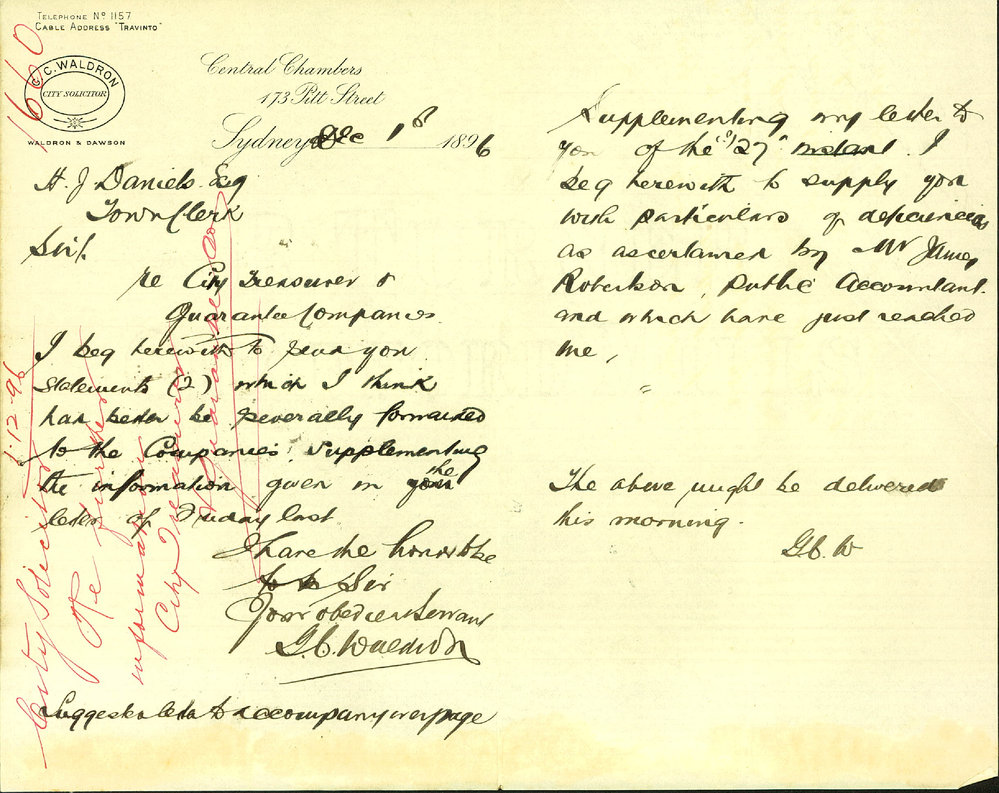 TELEPHONE No 1157
CABLE ADDRESS "TRAVINTO"
G. C. WALDRON
CITY SOLICITOR
WALDRON & DAWSON
Central Chambers
173 Pitt Street
Sydney Dec 1st 1896
H. J Daniels Esq
Town Clerk
Sir/.
re City Treasurer &
Guarantee Companies.
I beg herewith to send you
statements (2) which I think
had better be severally forwarded
to the Companies supplementing
the information given in your the
letter of Friday last
I have the honor to be
Sir
Your obedient Servant
G. C. Waldron
Suggested letter to accompany over page
1660
1.12.96
City Solicitor
re further
information
City Treasurer
Guarantee Co
Supplementing my letter to
you of the "27" instant. I
beg herewith to supply you
with particulars of deficiencies
as ascertained by Mr James
Robertson, Public Accountant.
and which have just reached
me,
"
The above might be delivered
this morning.
G. C. W